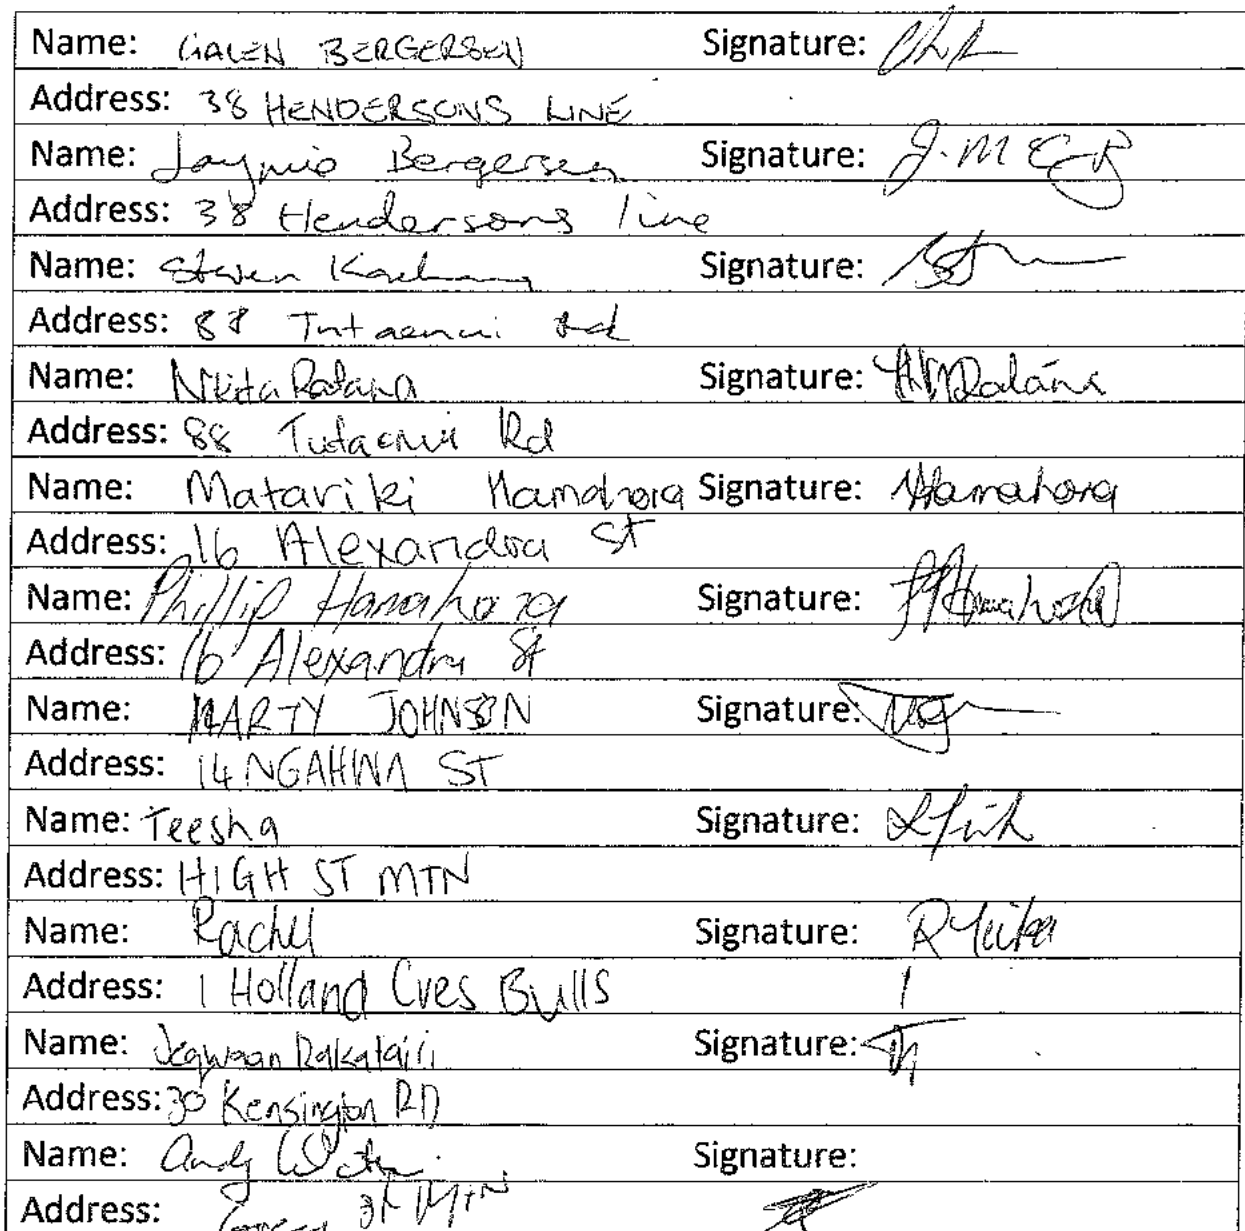 Name: GALEN BERGERSEN Signature:
Address: 38 HENDERSONS LINE
Name: Jaymie Bergersen Signature: J.M
Address: 38 Hendersons line
Name: Steven Signature:
Address: 88 Tutaenui Rd
Name: Nikita Ratana Signature: Ratána
Address: 88 Tutaenui Rd
Name: Matariki Hamahora Signature: Hamahora
Address: 16 Alexandra St
Name: Phillip Hamahora Signature: Hamahora
Address: 16 Alexandra St
Name: MARTY JOHNSON Signature:
Address: 14 NGAHINA ST
Name: Teesha Signature:
Address: HIGH ST MTN
Name: Rachel Signature: R
Address: 1 Holland Cres Bulls
Name: Signature:
Address: 30 Kensington RD
Name: Andy Signature:
Address: St MTN